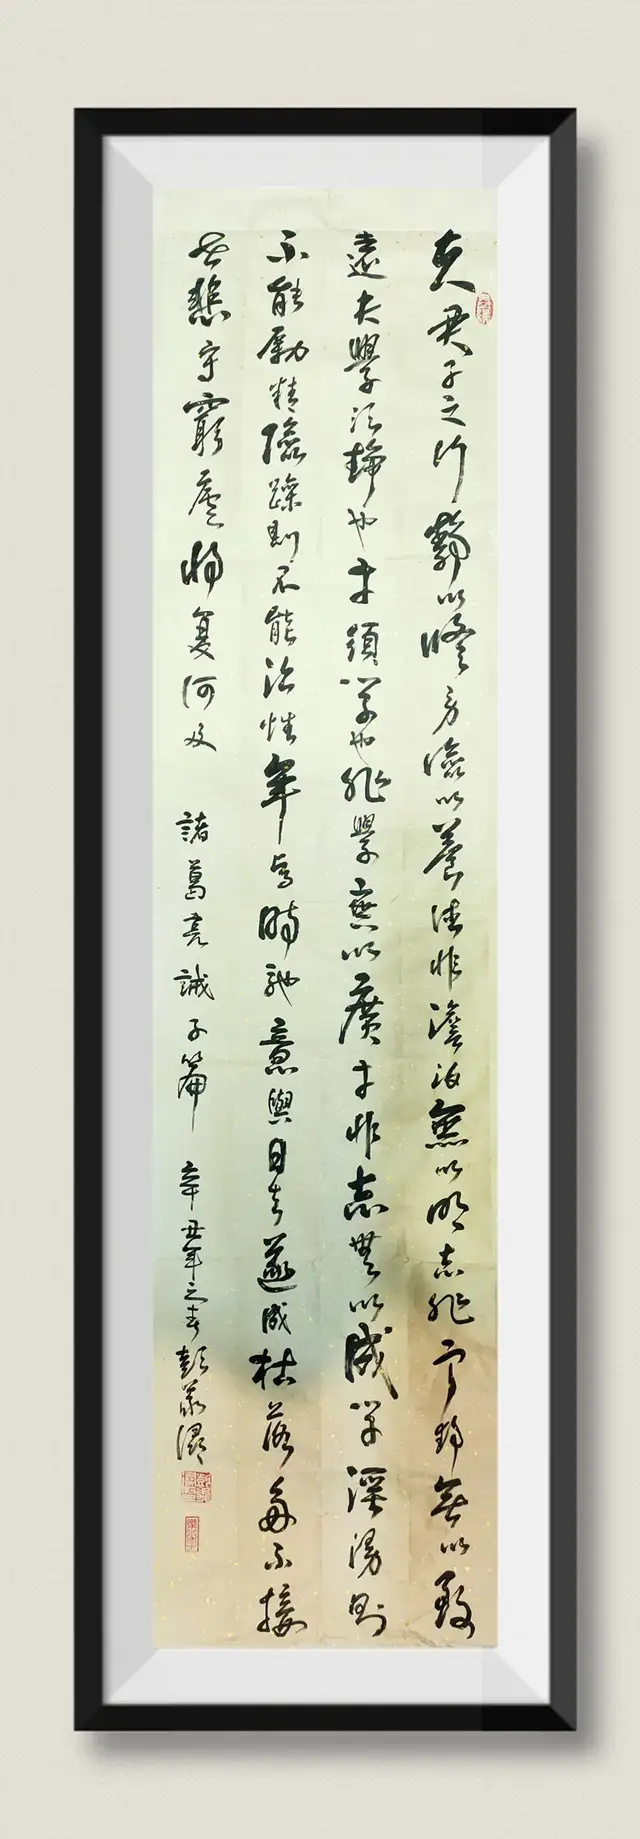 夫君子之行靜以修身儉以養德非澹泊無以明志非寧靜無以致
遠夫學須靜也才須学也非學無以廣才非志無以成学淫漫則
不能勵精險躁則不能治性年与時馳意與日去遂成枯落多不接
世悲守窮廬將復何及 諸葛亮誡子篇 辛丑年之春彭